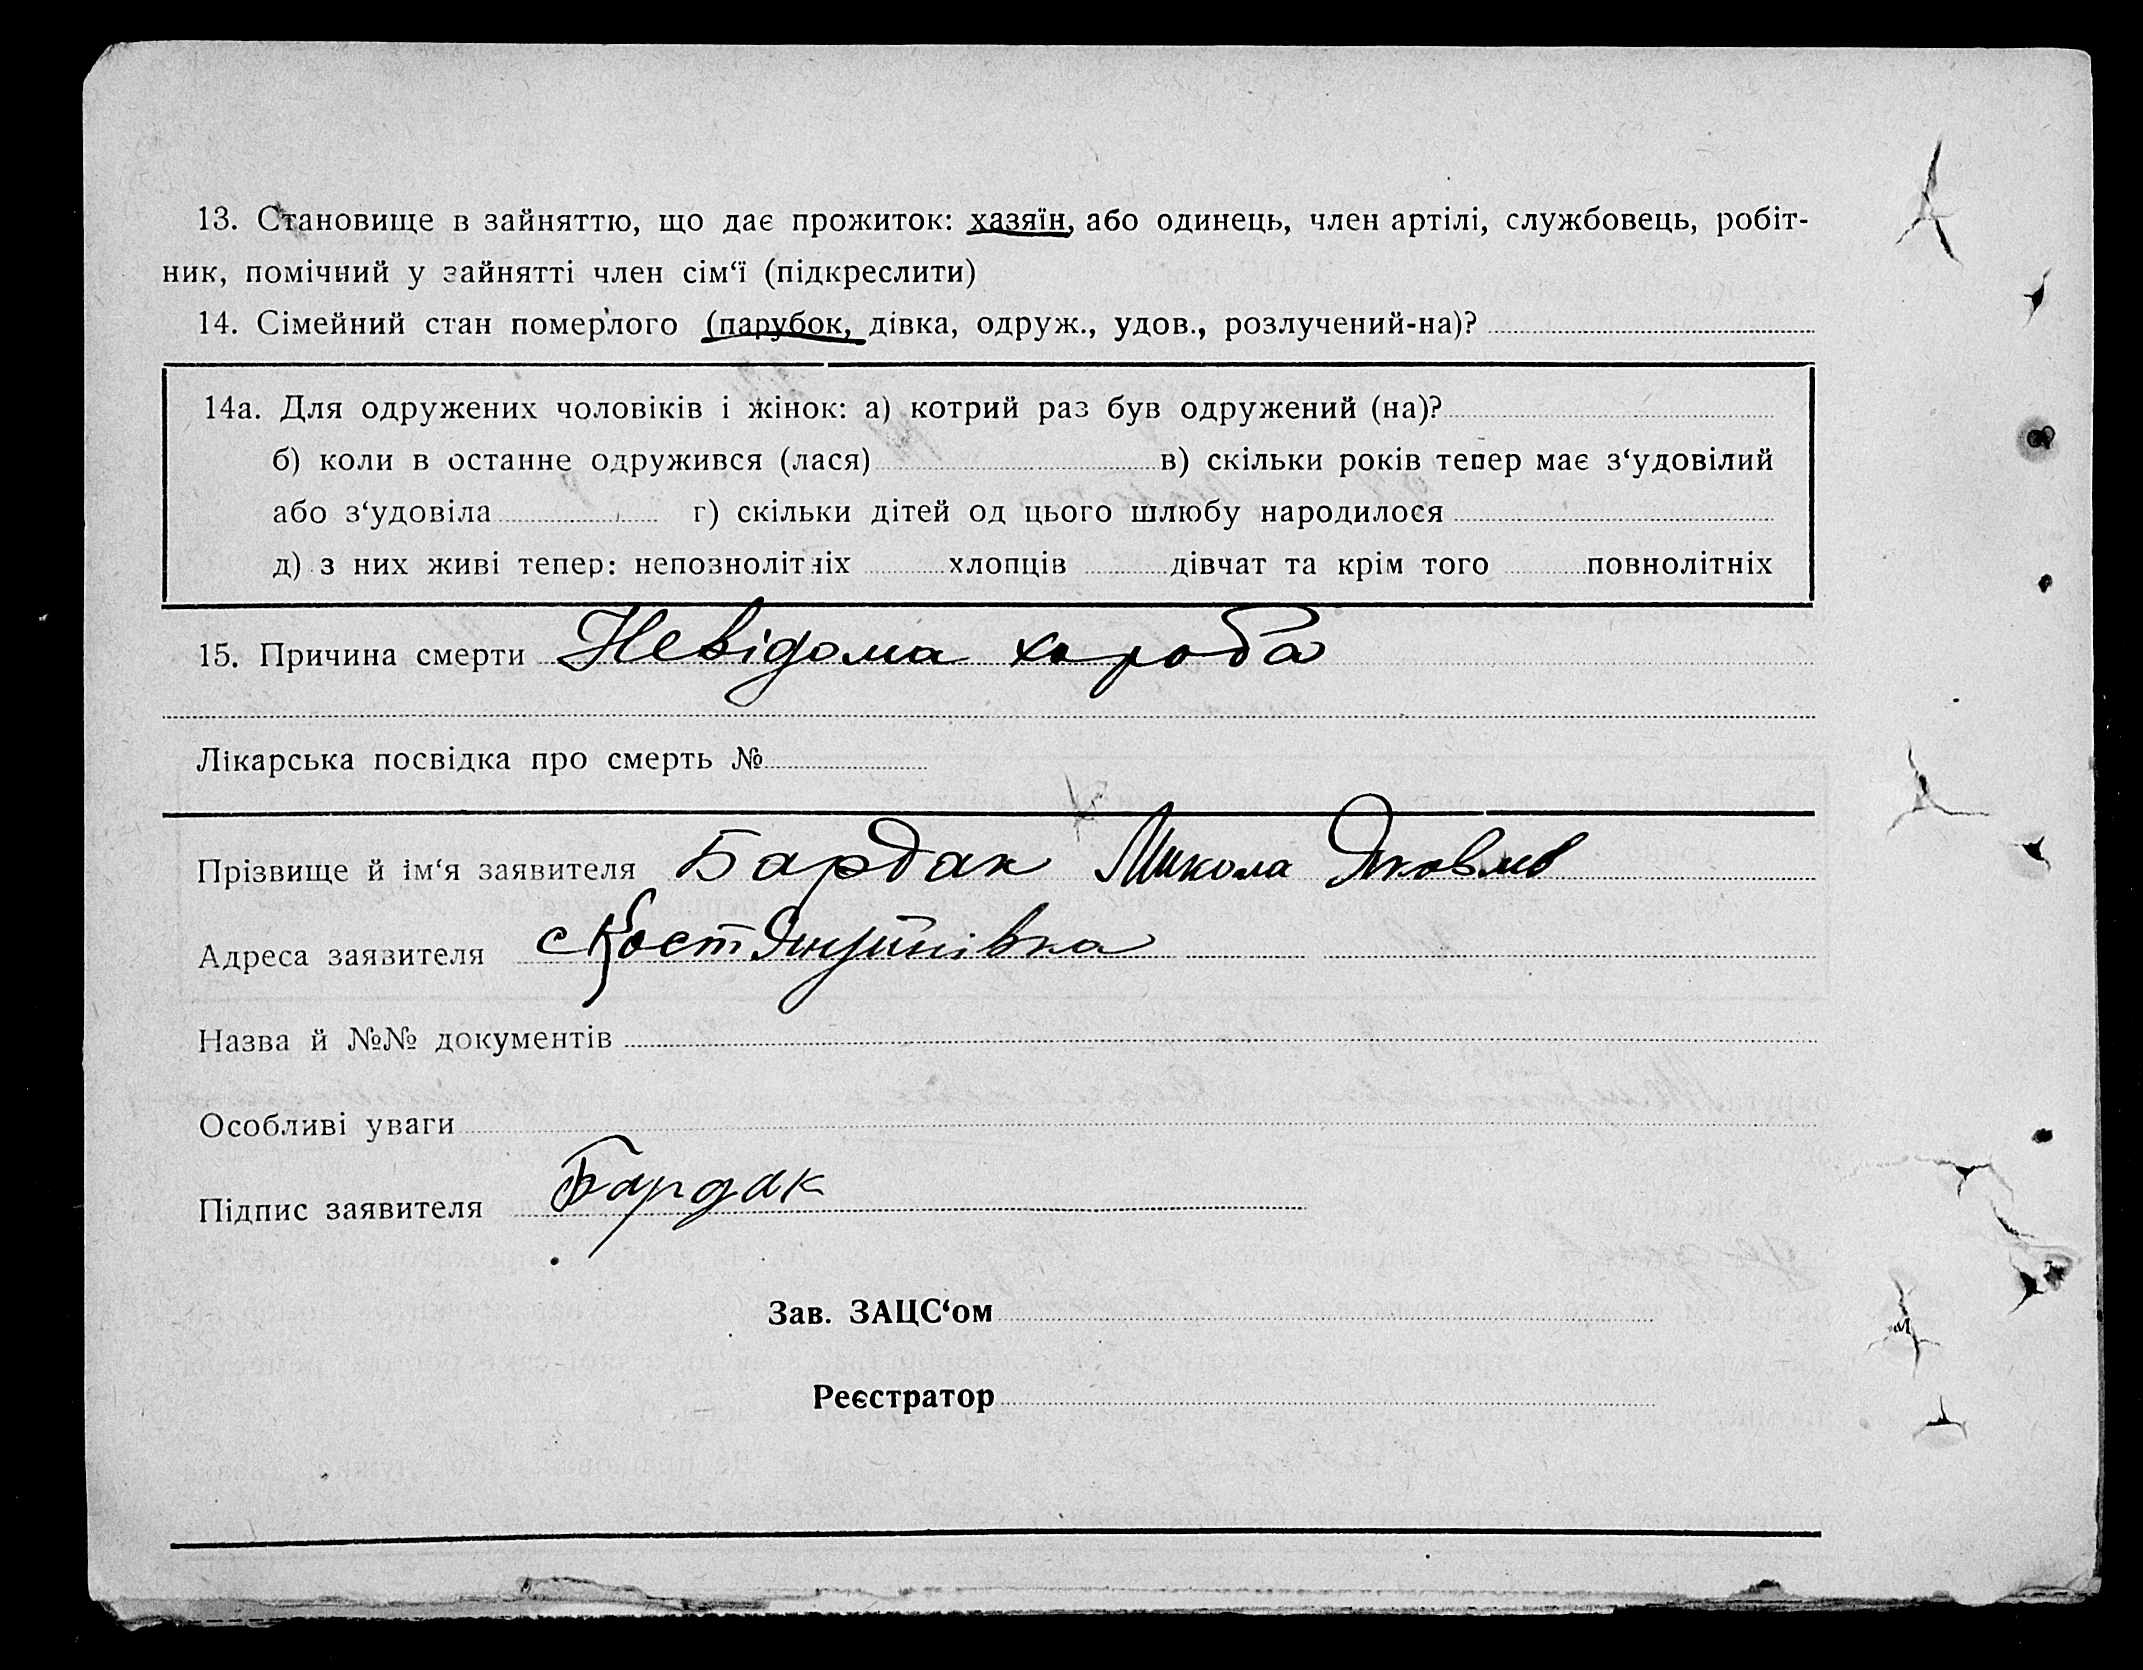 13. Становище в зайняттю, що дає прожиток: хазяїн, або одинець, член артілі, службовець, робіт-
ник, помічний у зайнятті член сім‘ї (підкреслити)
14. Сімейний стан померлого (парубок, дівка, одруж., удов., розлучений-на)?
14а. Для одружених чоловіків і жінок: а) котрий раз був одружений (на)?
б) коли в останне одружився (лася) в) скільки років тепер має з‘удовілий
або з‘удовіла г) скільки дітей од цього шлюбу народилося
д) з них живі тепер: неповнолітніх хлопців дівчат та крім того повнолітніх
15. Причина смерти Невідома хороба
Лікарська посвідка про смерть №
Прізвище й ім‘я заявителя Бардак Микола Яковлев
Адреса заявителя с Костянтинівка
Назва й №№ документів
Особливі уваги
Підпис заявителя Бардак
Зав. ЗАЦС‘ом
Реєстратор